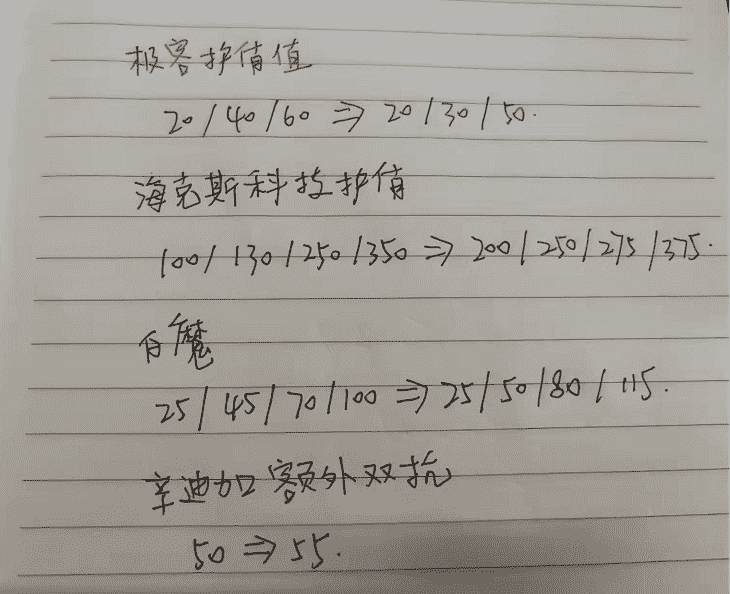 极客护情值
20/40/60 ⇒ 20/30/50.
海克斯科技护值
100/130/250/350 ⇒ 200/250/275/375.
白魔
25/45/70/100 ⇒ 25/50/80/115.
辛迪加 额外双抗
50 ⇒ 55.